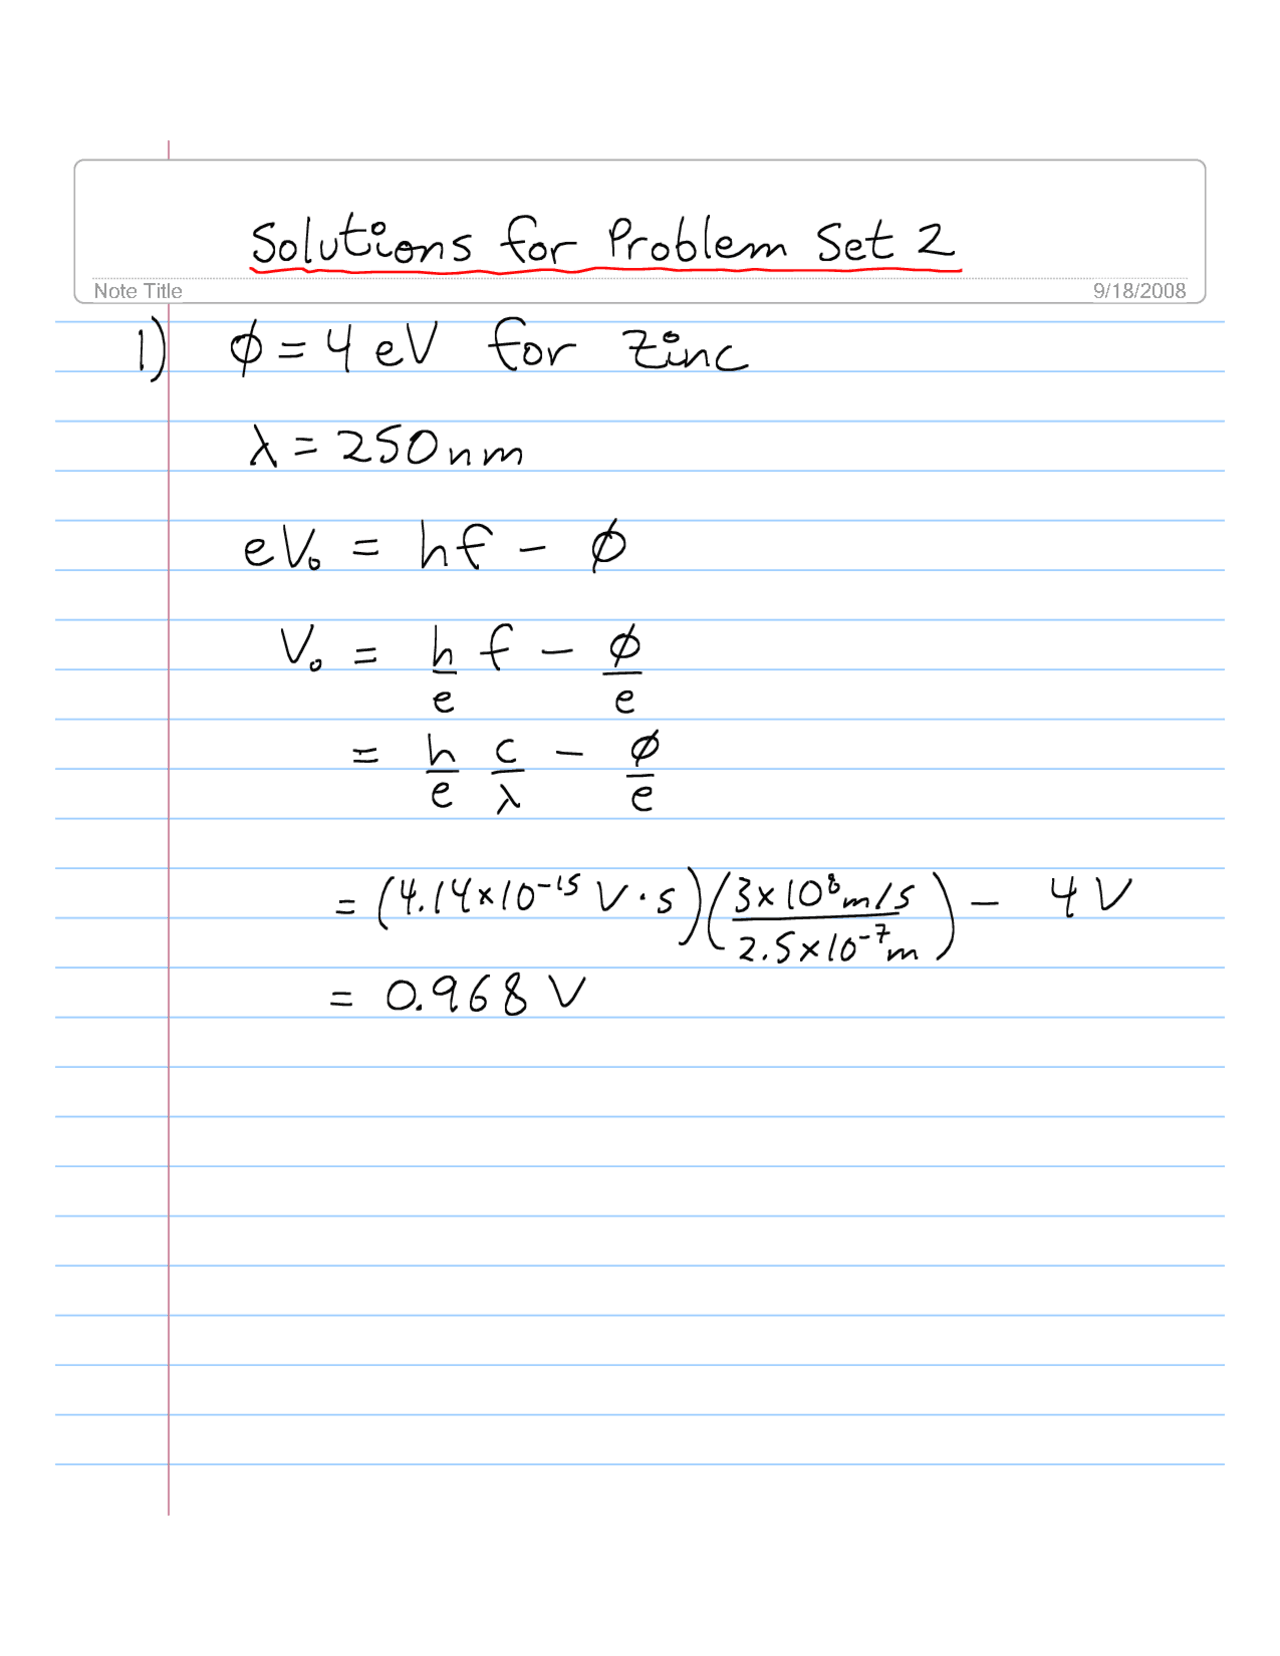 Solutions for Problem Set 2
Note Title 9/18/2008
1) ϕ = 4 eV for Zinc
λ = 250 nm
eV₀ = hf - ϕ
V₀ = h/e f - ϕ/e
= h/e c/λ - ϕ/e
= (4.14×10⁻¹⁵ V·s)(3×10⁸ m/s / 2.5×10⁻⁷ m) - 4 V
= 0.968 V